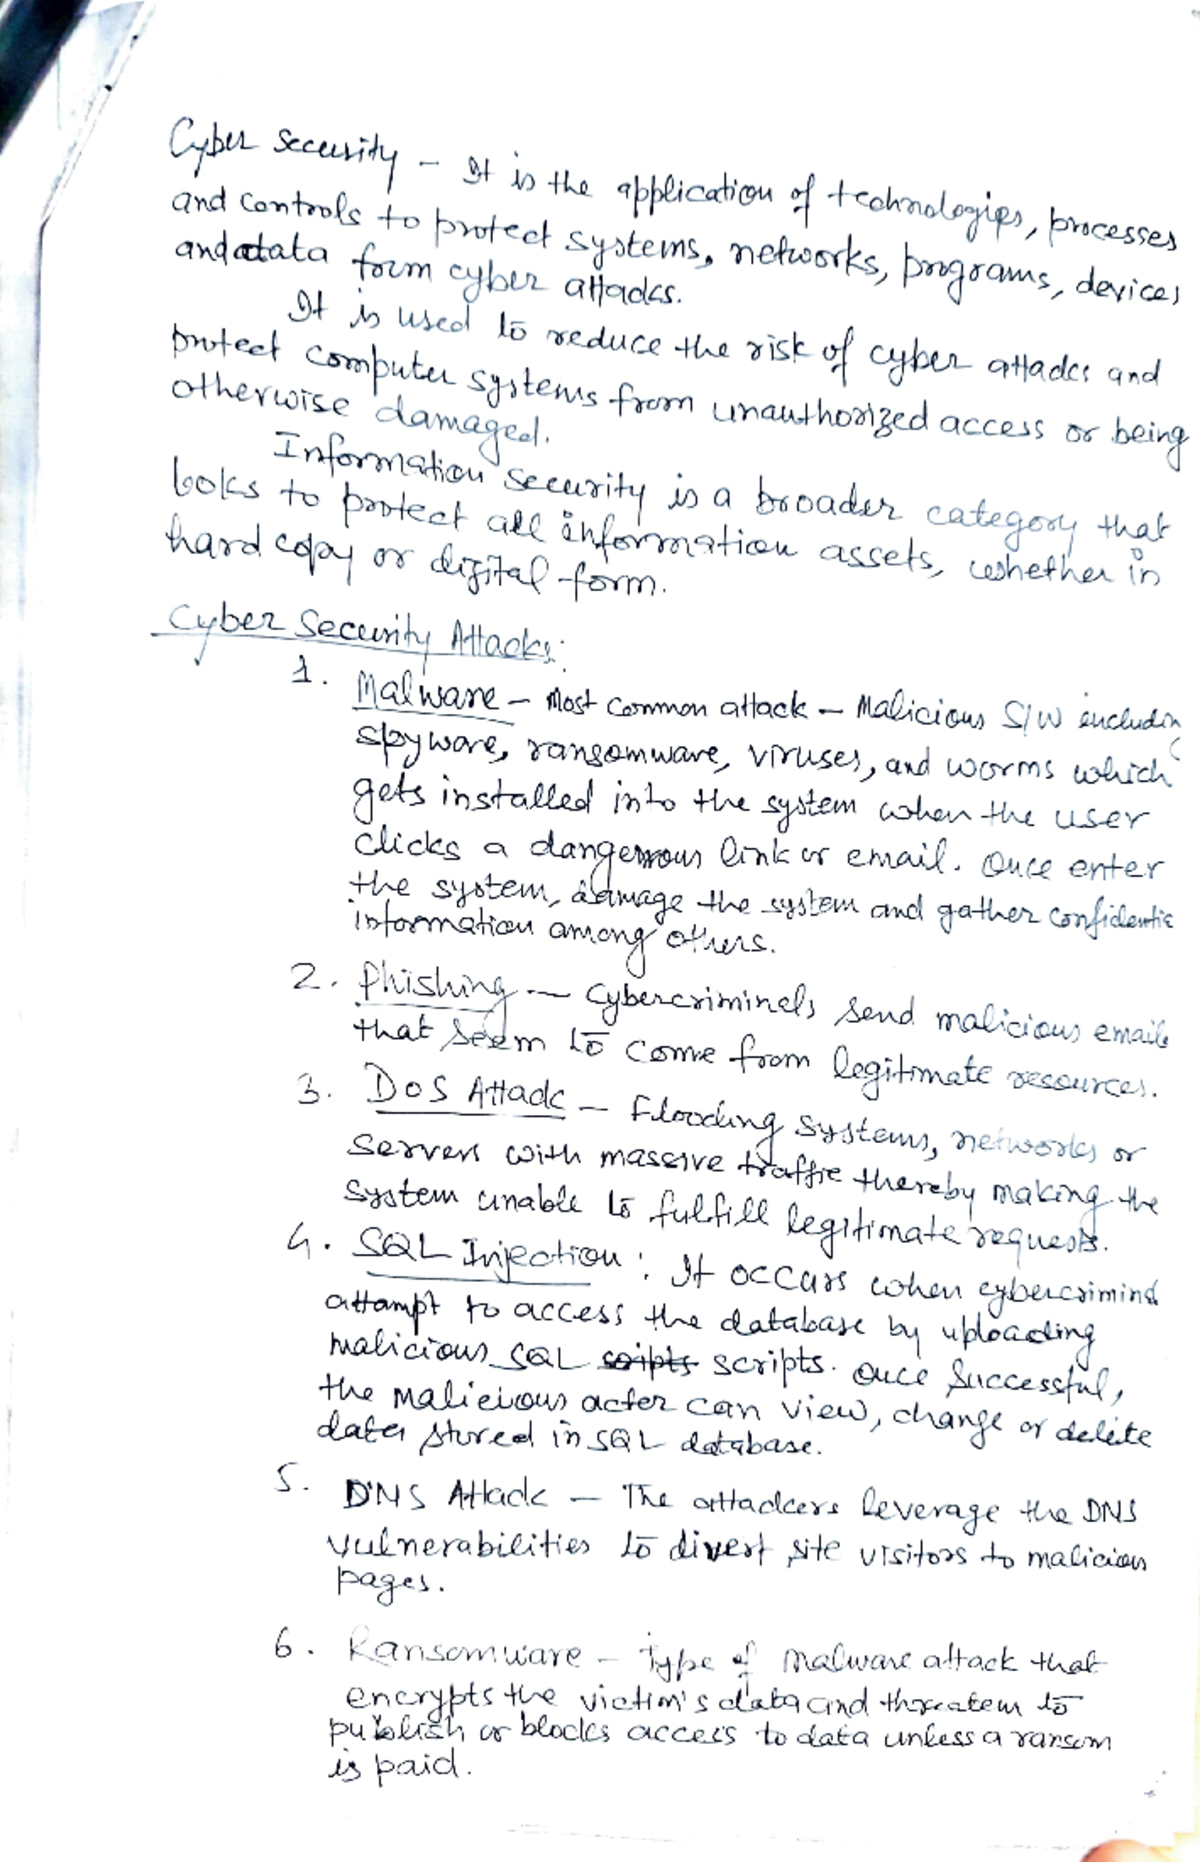 Cyber Security - It is the application of technologies, processes
and controls to protect systems, networks, programs, devices
and data form cyber attacks.
It is used to reduce the risk of cyber attacks and
protect computer systems from unauthorized access or being
otherwise damaged.
Information security is a broader category that
looks to protect all information assets, whether in
hard copy or digital form.
Cyber Security Attacks:
1. Malware - Most common attack - Malicious S/W includin
spyware, ransomware, viruses, and worms which
gets installed into the system when the user
clicks a dangerous link or email. Once enter
the system, damage the system and gather confidentia
information among others.
2. Phishing - Cybercriminels send malicious emails
that seem to come from legitimate resources.
3. DoS Attack - Flooding systems, networks or
servers with massive traffic thereby making the
system unable to fulfill legitimate requests.
4. SQL Injection : It occurs when cybercrimina
attampt to access the database by uploading
malicious SQL scipts scripts. Once successful,
the malicious acter can view, change or delete
data stored in SQL database.
5. DNS Attack - The attackers leverage the DNS
vulnerabilities to divert site visitors to malicious
pages.
6. Ransomware - Type of malware attack that
encrypts the victim's data and threatem to
publish or blocks access to data unless a ransom
is paid.